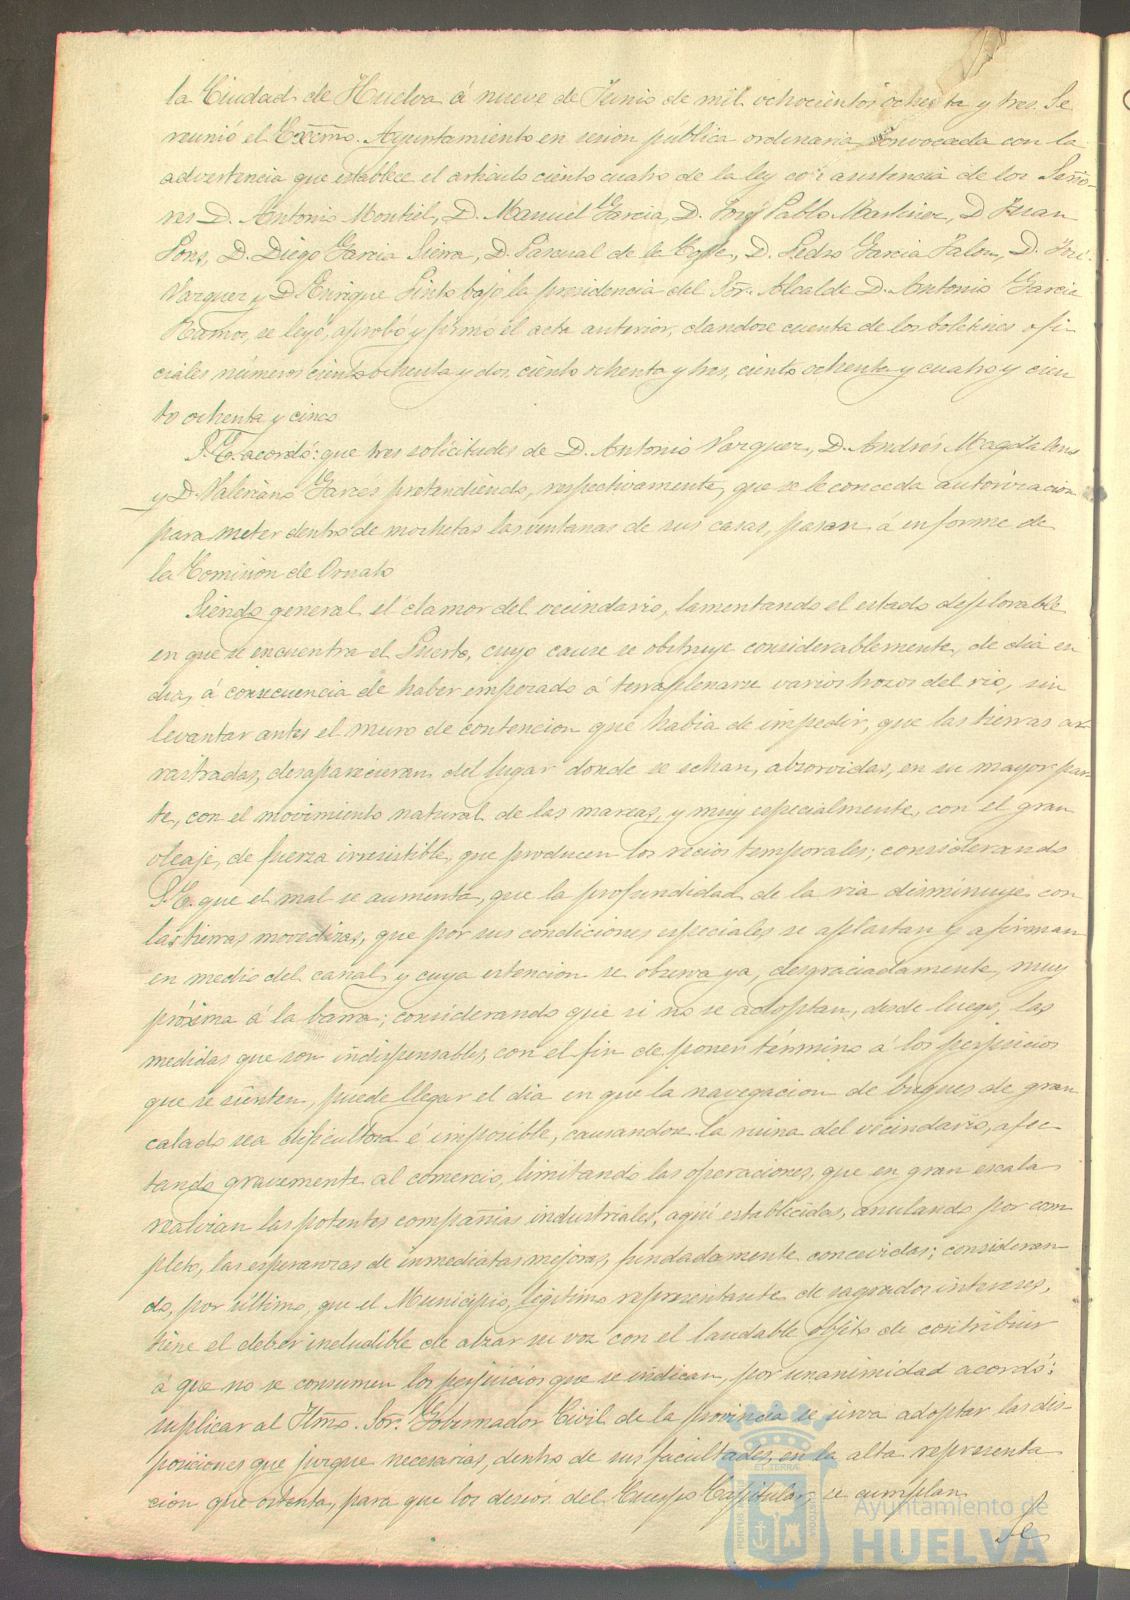 la Ciudad de Huelva á nueve de Junio de mil ochocientos ochenta y tres. Se
reunió el Excmo. Ayuntamiento en sesion publica ordinaria convocada con la
advertencia que establece el articulo ciento cuatro de la ley con asistencia de los Seño-
res D. Antonio Montiel, D. Manuel Garcia, D. José Pablo Martinez, D Juan
Pons, D. Diego Garcia Sierra, D. Pascual de la Corte, D. Pedro Garcia Jalon, D. José
Vazquez y D Enrique Pinto bajo la presidencia del Sor. Alcalde D. Antonio Garcia
Ramos, se leyó, aprobó y firmó el acta anterior, dandose cuenta de los boletines ofi
ciales números ciento ochenta y dos, ciento ochenta y tres, ciento ochenta y cuatro y cien
to ochenta y cinco
S. E. acordó: que tres solicitudes de D. Antonio Vazquez, D. Andrés Magdalena
y D. Valeriano Garcés pretendiendo, respectivamente, que se le conceda autorizacion
para meter dentro de mochetas las ventanas de sus casas, pasan á informe de
la Comision de Ornato
Siendo general el clamor del vecindario, lamentando el estado deplorable
en que se encuentra el Puerto, cuyo cauce se obstruye considerablemente, de dia en
dia, á consecuencia de haber empezado á terraplenarse varios trozos del rio, sin
levantar antes el muro de contencion que habia de impedir, que las tierras ar-
rastradas, desaparecieran del lugar donde se echan, absorvidas, en su mayor par
te, con el movimiento natural de las mareas, y muy especialmente, con el gran
oleaje, de fuerza irresistible, que producen los recios temporales; considerando
S. E. que el mal se aumenta, que la profundidad de la ria disminuye con
las tierras movedizas, que por sus condiciones especiales se aplastan y afirman
en medio del canal y cuya estencion se observa ya, desgraciadamente, muy
próxima á la barra; considerando que si no se adoptan, desde luego, las
medidas que son indispensables, con el fin de poner término á los perjuicios
que se sienten, puede llegar el dia en que la navegacion de buques de gran
calado sea dificultosa é imposible, causandose la ruina del vecindario, afec
tando gravemente al comercio, limitando las operaciones, que en gran escala
realizan las potentes compañias industriales, aquí establecidas, anulando por com
pleto, las esperanzas de inmediatas mejoras, fundadamente concevidas; consideran
do, por último, que el Municipio, legitimo representante de sagrados intereses,
tiene el deber ineludible de alzar su voz con el laudable objeto de contribuir
á que no se consumen los perjuicios que se indican, por unanimidad acordó:
suplicar al Iltmo. Sor. Gobernador Civil de la provincia se sirva adoptar las dis-
posiciones que juzgue necesarias, dentro de sus facultades, en la alta representa
cion que ostenta, para que los deseos del Cuerpo Capitular, se cumplan
Se
Ayuntamiento de
HUELVA